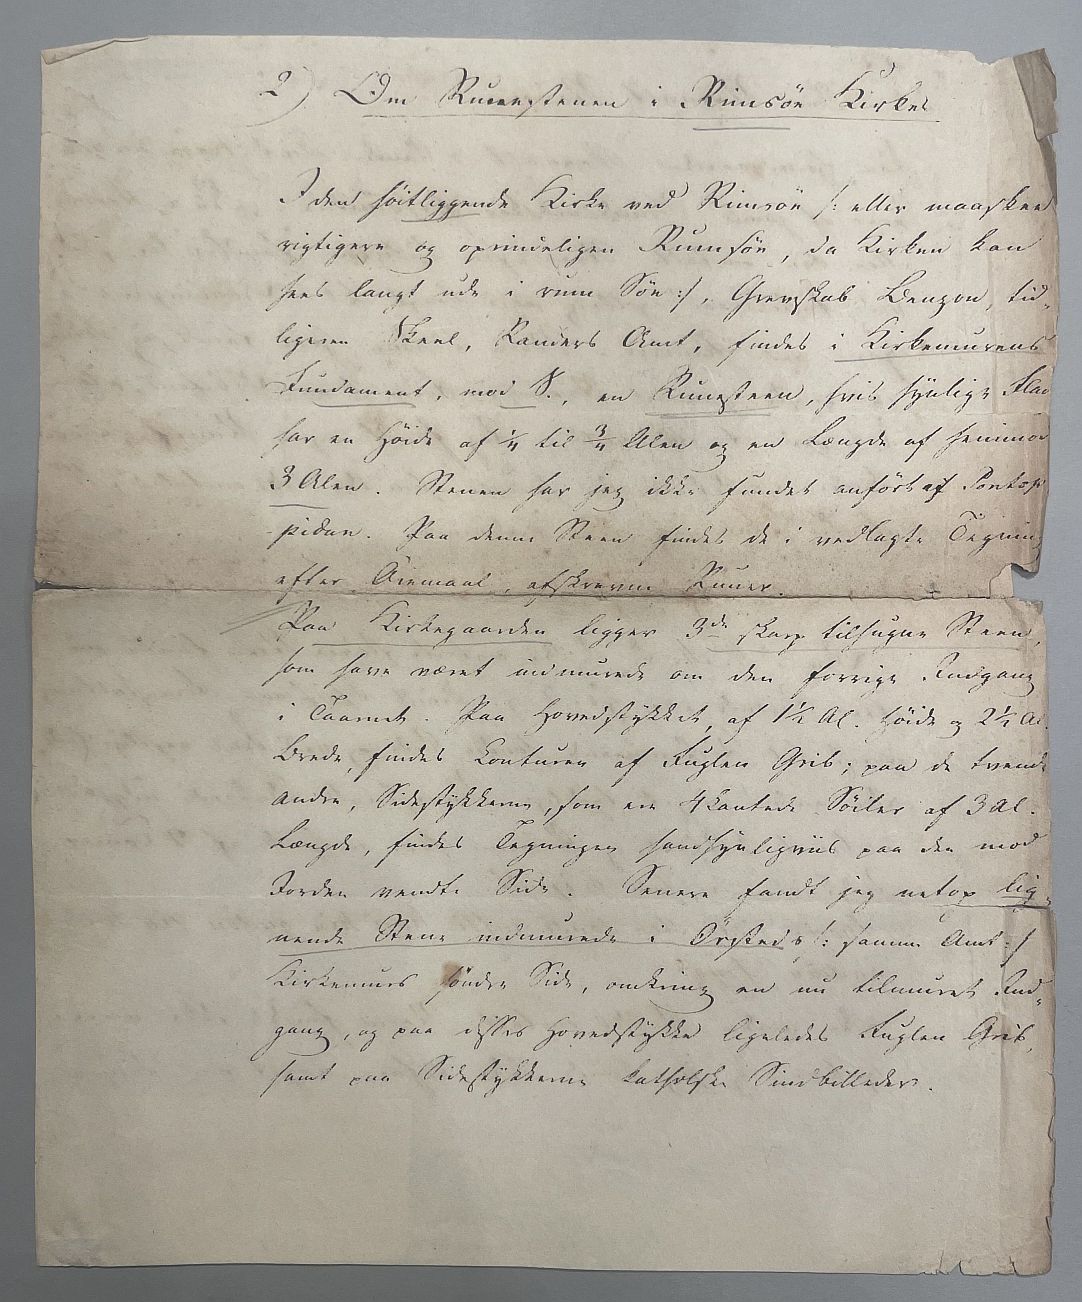 2) Om Runestenen i Rimsöe Kirke
I den höitliggende Kirke ved Rimsöe /: eller maaskee
rigtigere og oprindeligen Rumsöe, da Kirken kan
sees langt ude i rum Söe :/, Grevskab Benzon, tid-
ligere Skeel, Randers Amt, findes i Kirkemurens
Fundament, mod S., en Runesteen, hvis synlige Flade
har en Höide af ¼ til ¾ Alen og en Længde af henimod
3 Alen. Stenen har jeg ikke fundet anfört af Pontop-
pidan. Paa denne Steen findes de i vedlagte Tegning
efter Öiemaal, afskrevne Runer.
Paa Kirkegaarden ligger 3de skarp tilhugne Steene,
som have været indmurede om den forrige Indgang
i Taarnet. Paa Hovedstykket, af 1½ Al. Höide og 2½ Al.
Brede, findes Conturen af Fuglen Grib; paa de tvende
andre, Sidestykkerne, som ere 4kantede Söiler af 3 Al.
Længde, findes Tegningen sandsynligviis paa den mod
Jorden vendte Side. Senere fandt jeg netop lig-
nende Stene indmurede i Örsteds /: samme Amt :/
Kirkemurs söndre Side, omkring en nu tilmuret Ind-
gang, og paa disses Hovedstykke ligeledes Fuglen Grib,
samt paa Sidestykkerne katholske Sindbilleder.